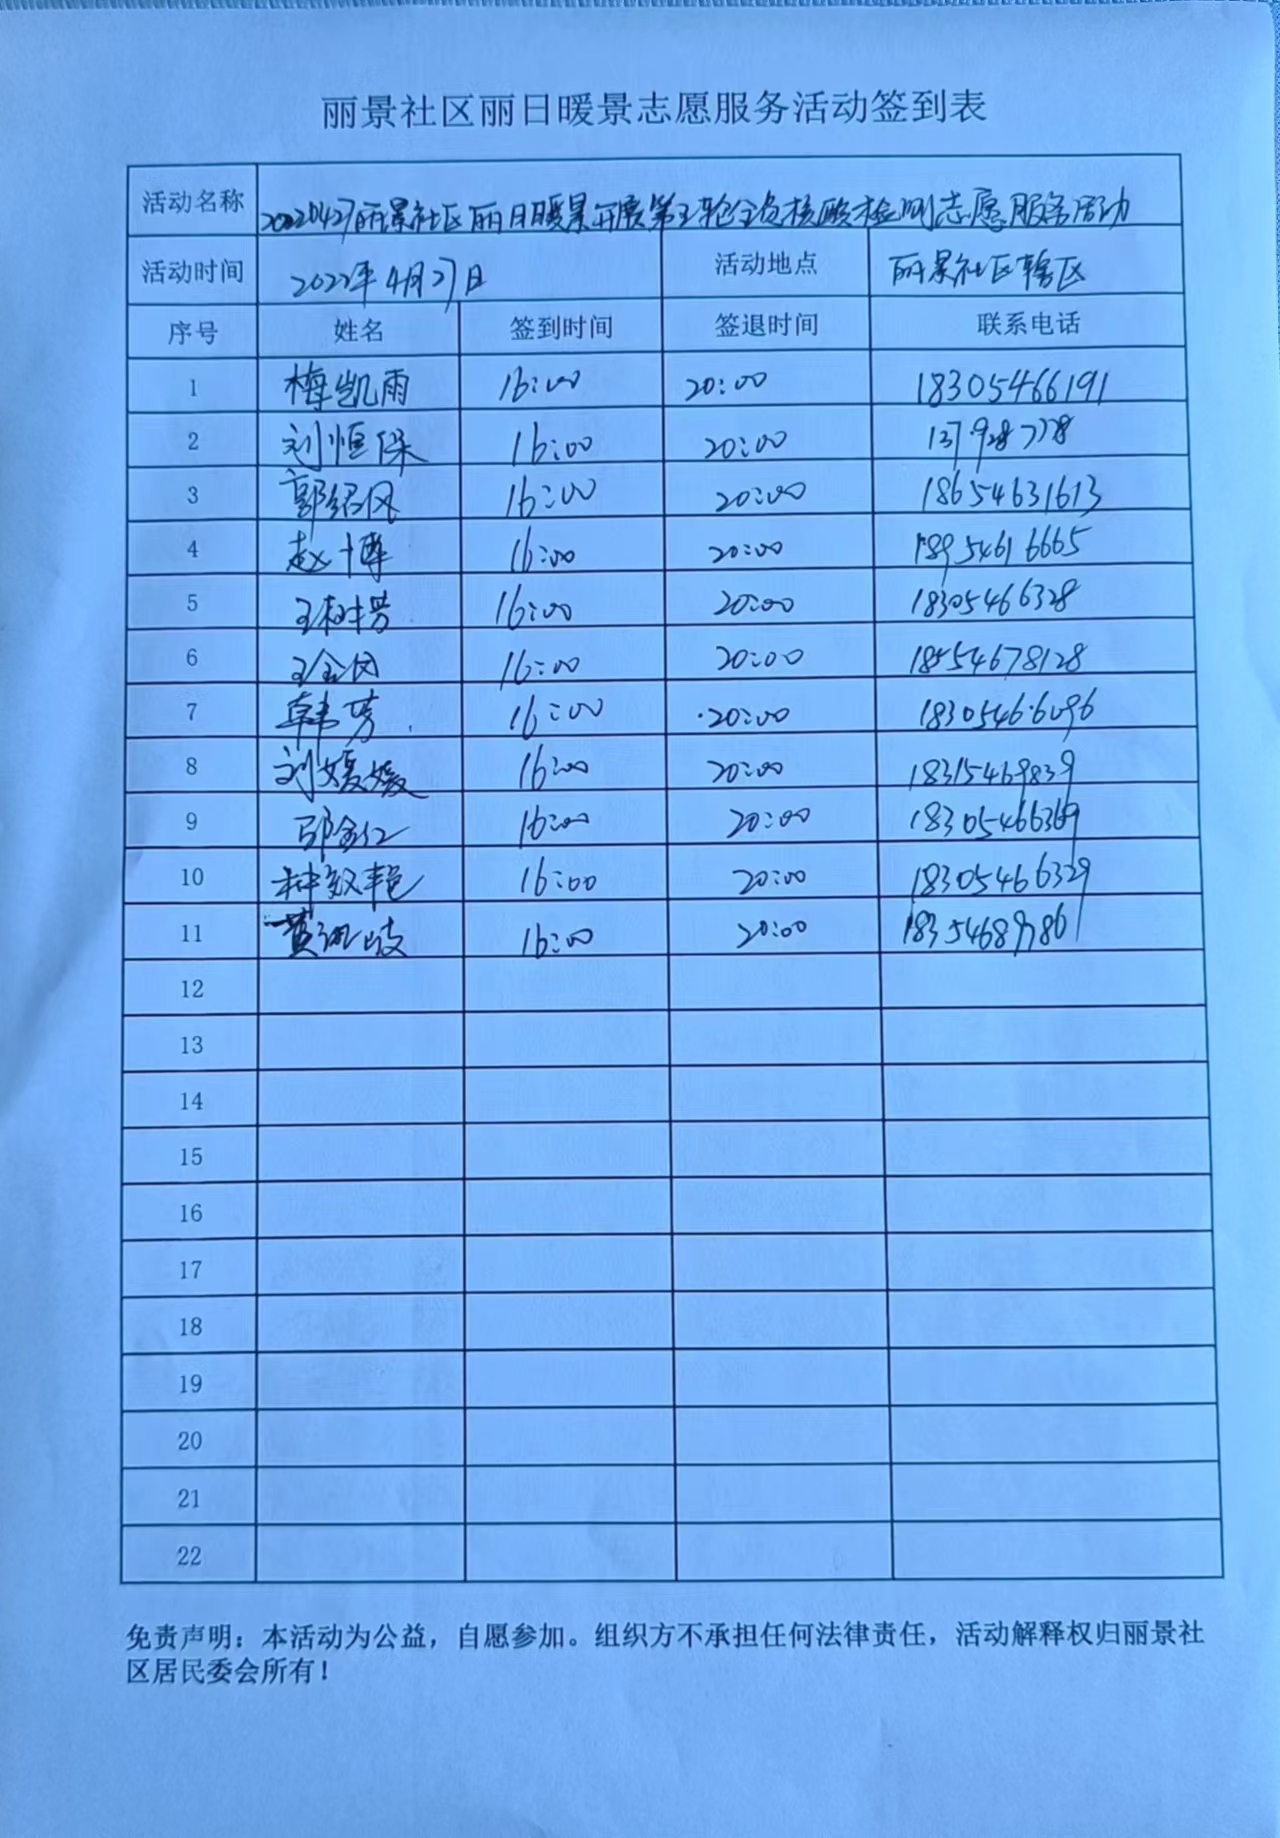 丽景社区丽日暖景志愿服务活动签到表
活动名称 20220427丽景社区丽日暖景开展第五轮全员核酸检测志愿服务活动
活动时间 2022年4月27日 活动地点 丽景社区辖区
序号 姓名 签到时间 签退时间 联系电话
1 梅凯雨 16:00 20:00 18305466191
2 刘恒保 16:00 20:00
3 郭绍风 16:00 20:00 18654631613
4 赵博 16:00 20:00 18954616665
5 王树芳 16:00 20:00 18305466328
6 16:00 20:00 18554678128
7 韩芳 16:00 20:00 18305466096
8 刘媛媛 16:00 20:00 18315469839
9 16:00 20:00 18305466369
10 林效艳 16:00 20:00 18305466329
11 16:00 20:00 18354689786
12
13
14
15
16
17
18
19
20
21
22
免责声明：本活动为公益，自愿参加。组织方不承担任何法律责任，活动解释权归丽景社
区居民委会所有！